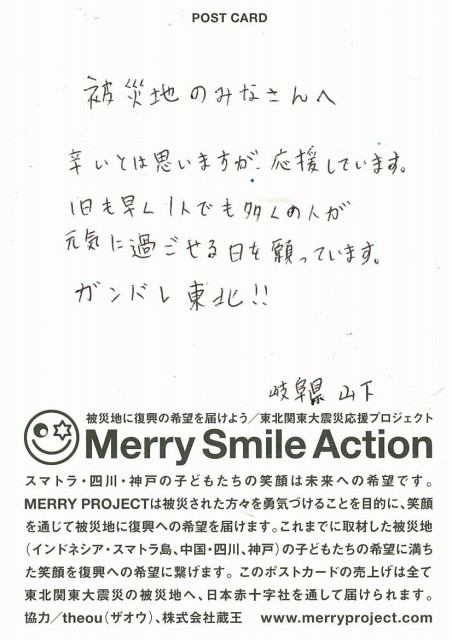 POST CARD
被災地のみなさんへ
辛いとは思いますが、応援しています。
1日も早く1人でも多くの人が
元気に過ごせる日を願っています。
ガンバレ東北!!
岐阜県 山下
被災地に復興の希望を届けよう/東北関東大震災応援プロジェクト
Merry Smile Action
スマトラ・四川・神戸の子どもたちの笑顔は未来への希望です。
MERRY PROJECTは被災された方々を勇気づけることを目的に、笑顔
を通じて被災地に復興への希望を届けます。これまでに取材した被災地
(インドネシア・スマトラ島、中国・四川、神戸)の子どもたちの希望に満ち
た笑顔を復興への希望に繋げます。このポストカードの売上げは全て
東北関東大震災の被災地へ、日本赤十字社を通して届けられます。
協力/theou(ザオウ)、株式会社蔵王 www.merryproject.com